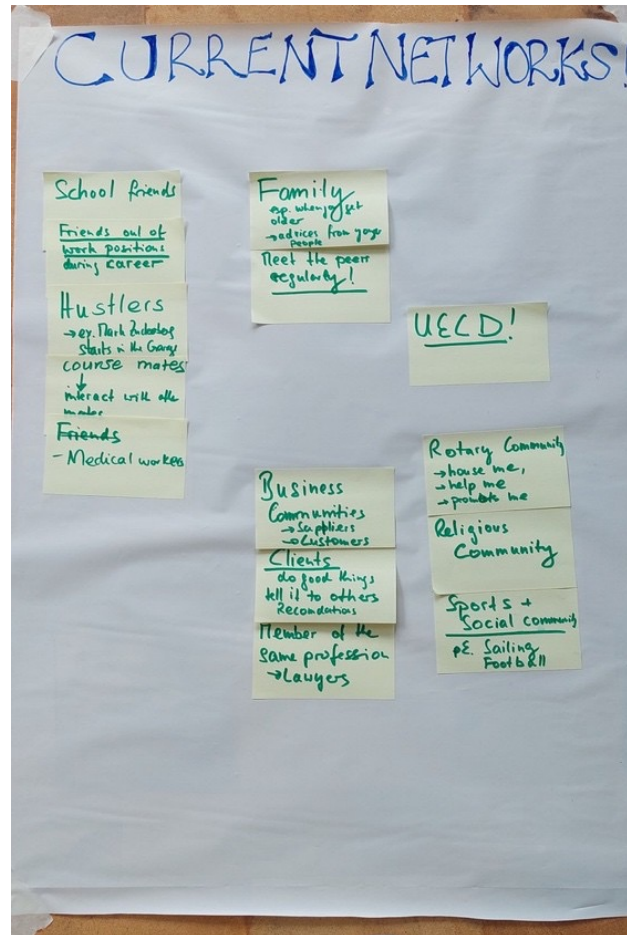 CURRENT NETWORKS!
School friends
Friends out of
work positions
during career
Hustlers
→ ex. Mark Zuckerberg
starts in the Garage
course mates
↓
interact with
Friends
- Medical workers
Family
esp. when you get
older
→ advices from
people
Meet the peers
regularly!
UECD!
Business
Communities
→ Suppliers
→ Customers
Clients
do good things
tell it to others
Recomdations
Member of the
same profession
→ Lawyers
Rotary Community
→ house me,
→ help me
→ promote me
Religious
Community
Sports +
Social community
pE. Sailing
Football